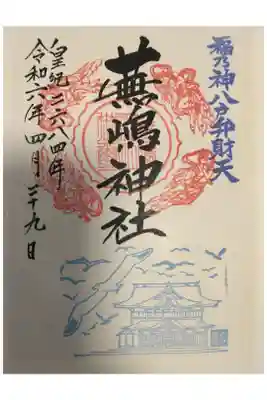 福乃神八戸弁財天
蕪嶋神社
皇紀二六八四年
令和六年四月二十九日